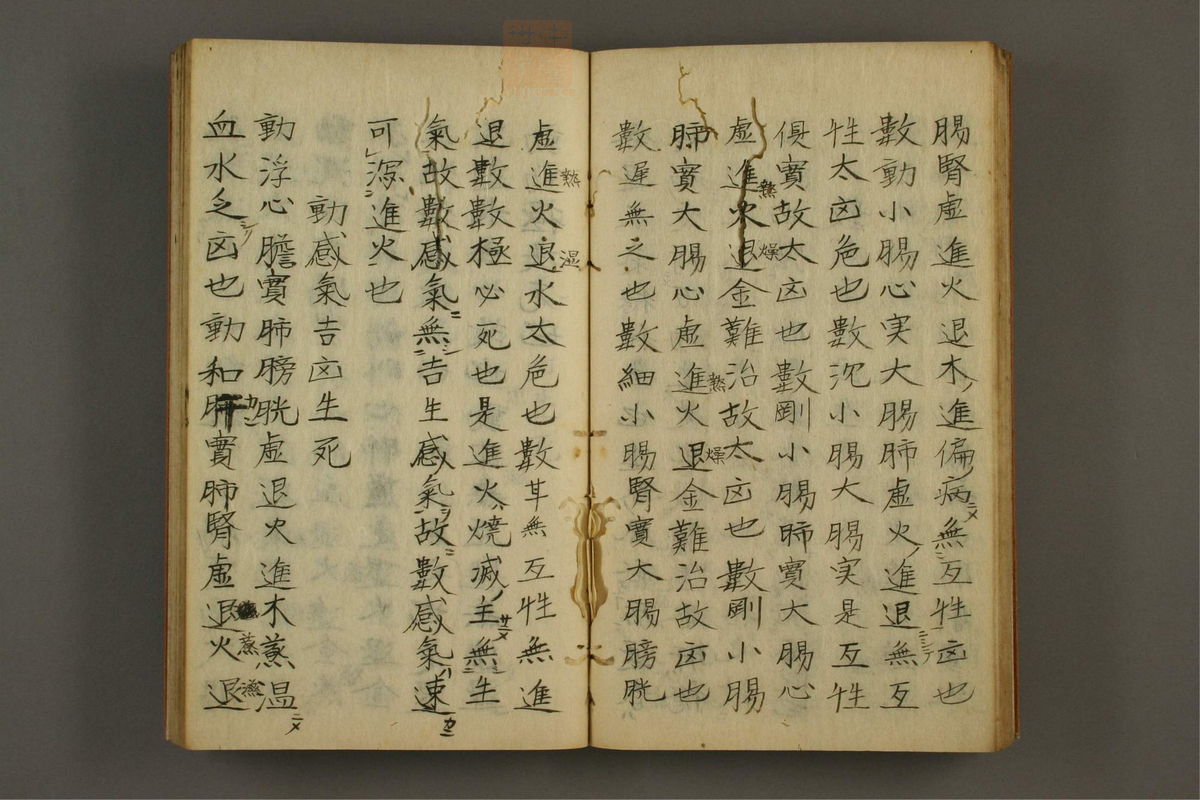 腸腎虚進火退木ノ進偏ノ病ニメ無ニ互性凶也
數動小腸心実大腸肺虚火ノ進退ニシテ無互
性太凶危也數沉小腸大腸実是互性
俱實故太凶也數剛小腸肺實大腸心
虚進熱火退燥金難治故太凶也數剛小腸
肺實大腸心虚進熱火退燥金難治故凶也
數遅無之也數細小腸腎實大腸膀胱
虚進熱火退湿水太危也數芤無互性無進
退數數極必死也是進火ハ燒滅ノ主サメ無ニ生
氣故數感氣ニ無ニシ吉生感氣シ故ニ數感氣ハ速カニ
可レ瀉ニ進火也
動感氣吉凶生死
動浮心膽實肺膀胱虚退火進木蒸温ニメ
血水乏シ凶也動和肝實肺腎虚退火蒸退濕